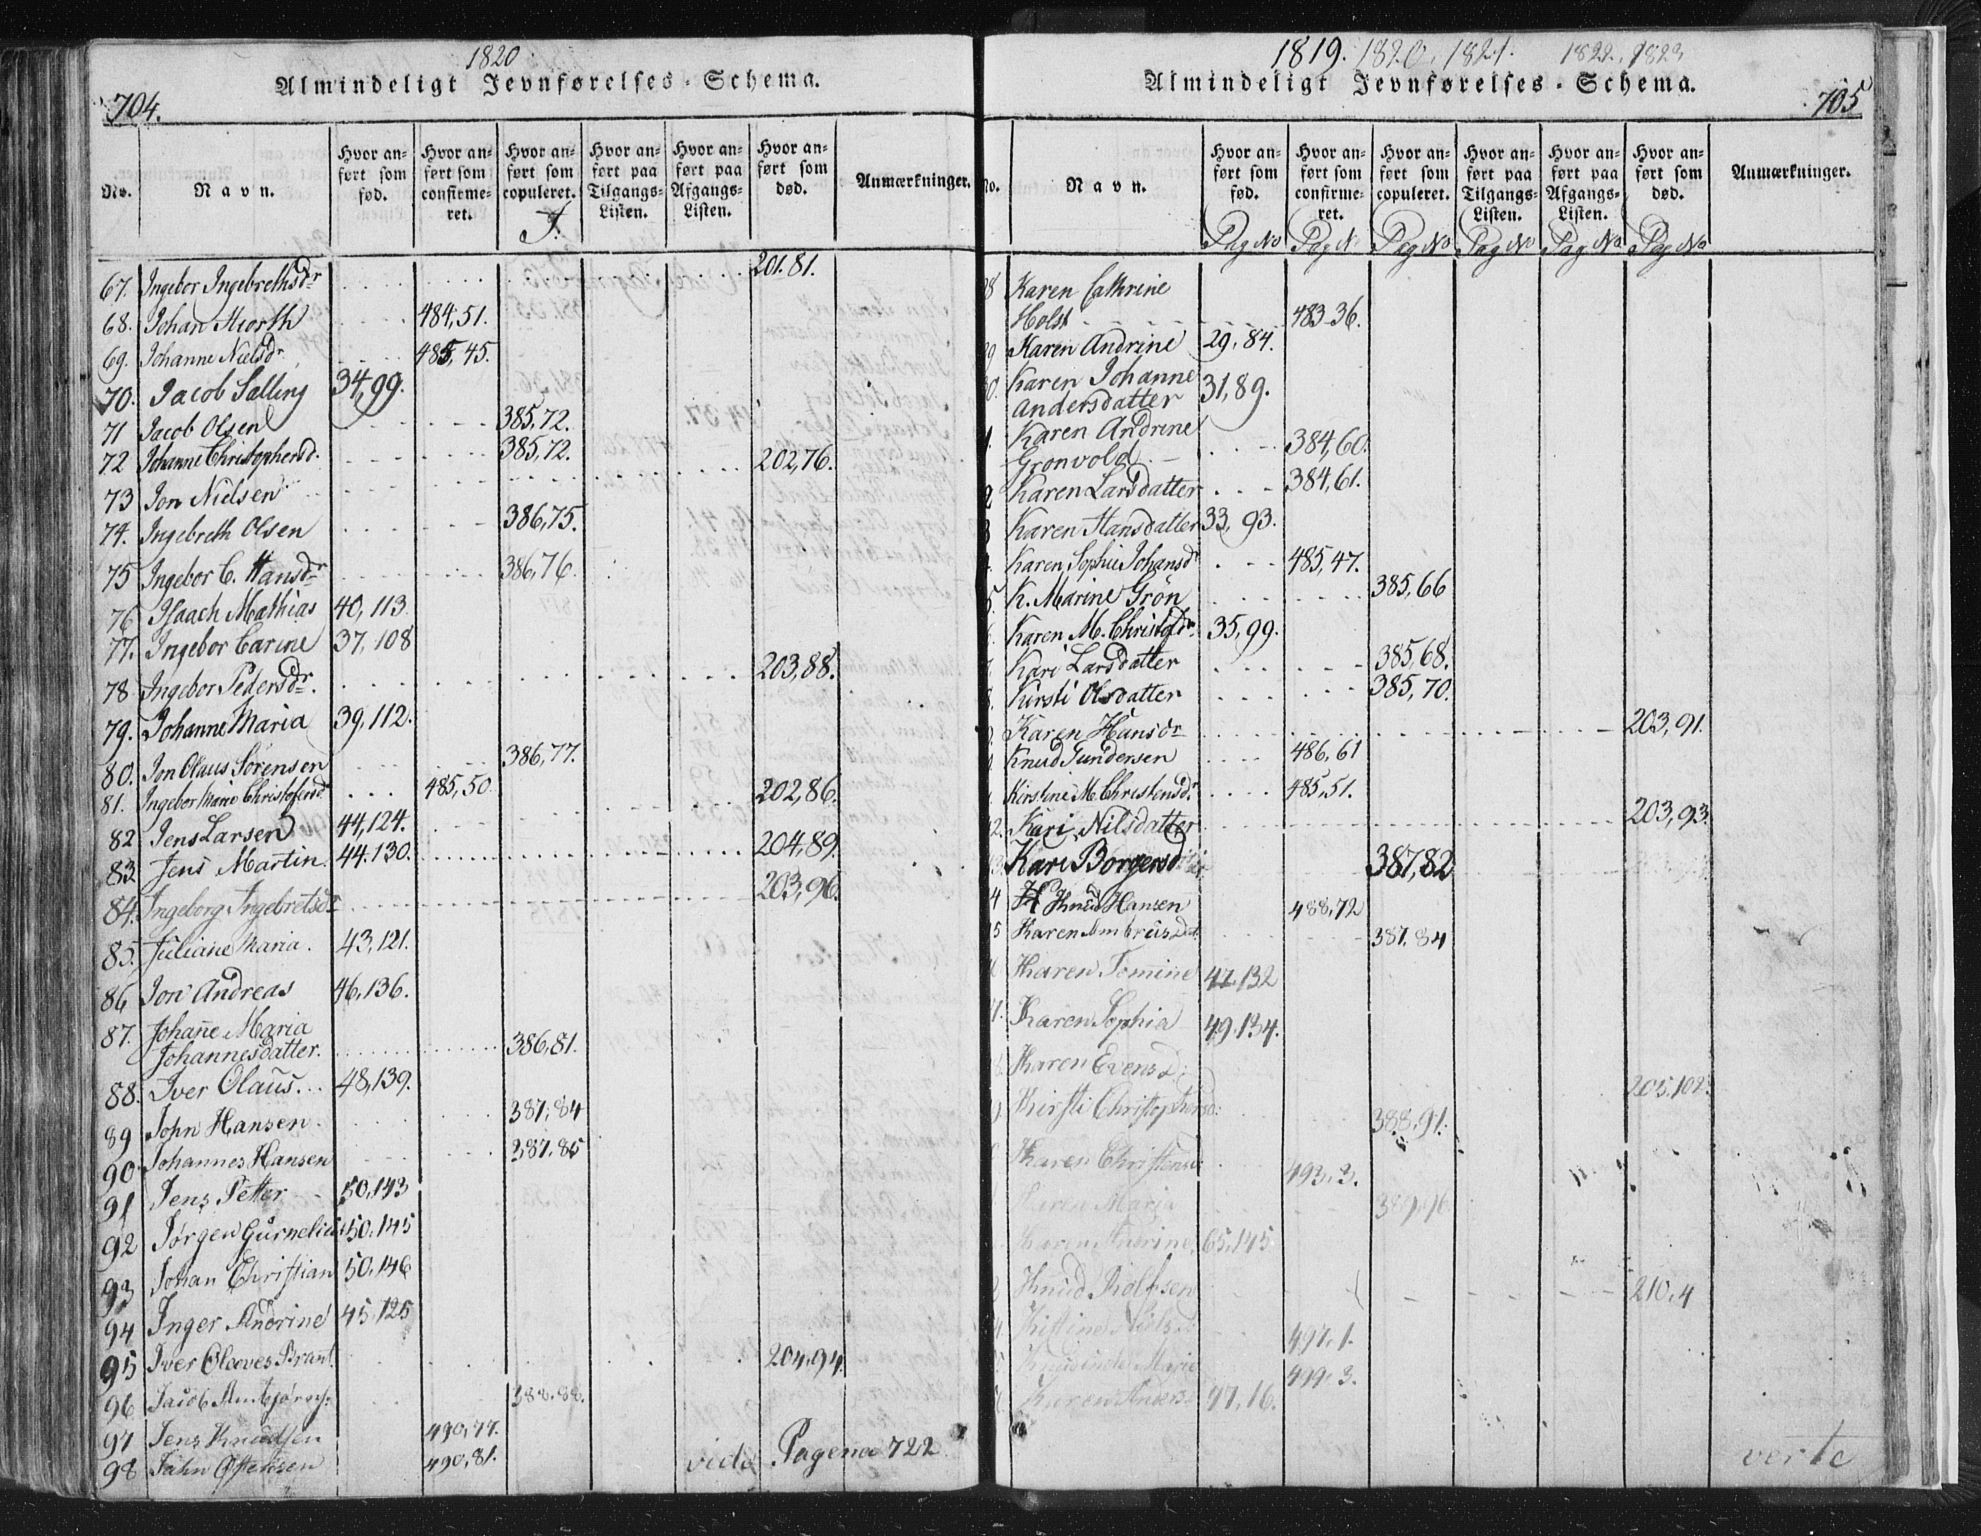 1820
Almindeligt Jevnførelses-Schema.
704.
No. Navn. Hvor anført som fød. Hvor anført som confirmeret. Hvor anført som copuleret. Hvor anført paa Tilgangs-Listen. Hvor anført paa Afgangs-Listen. Hvor anført som død. Anmærkninger.
J.
67. Ingebor Ingebrethsdr 201.81.
68. Johan Hiorth 484,51.
69. Johanne Nielsdr 485,45.
70. Jacob Salling 34,99.
71 Jacob Olsen 385,72.
72 Johanne Christophersd. 385,72.
73 Jon Nielsen 202,76.
74. Ingebreth Olsen 386,75.
75 Ingebor C. Hansdr 386,76.
76 Isaach Mathias 40,113.
77. Ingebor Carine 37,108
78 Ingebor Pedersdr. 203,88.
79. Johanne Maria 39,112.
80. Jon Olaus Sörensen 386,77.
81. Ingebor Marie Christofersd 485,50 202,86.
82 Jens Larsen 44,124.
83 Jens Martin. 44.130. 204,89.
84. Ingeborg Ingebretsdr 203,96.
85. Juliane Maria. 43,121.
86 Jon Andreas 46,136.
87. Johañe Maria
Johannesdatter. 386,81.
88. Iver Olaus. 48,139.
89 John Hansen 387,84
90 Johannes Hansen 387.85
91 Jens Petter 50,143
92 Jørgen Gurnelius 50.145
93 Johan Christian 50.146
94 Inger Andrine 45.125
95 Iver Oleeves Brant. 204,94.
96 Jacob 388.88.
97 Jens Knudsen 490,77.
98 John 490,81.
vide Pagena 722
1819. 1820. 1821. 1822. 1823
Almindeligt Jevnførelses-Schema.
705
No. Navn. Hvor anført som fød. Hvor anført som confirmeret. Hvor anført som copuleret. Hvor anført paa Tilgangs-Listen. Hvor anført paa Afgangs-Listen. Hvor anført som død. Anmærkninger.
Pag No Pag No Pag No Pag No Pag No Pag No
8 Karen Cathrine
Holst 483-36.
9 Karen Andrine 29,84.
0. Karen Johanne
Andersdatter 31,89.
1. Karen Andrine
Gronvold 384,60.
2 Karen Larsdatter 384,61.
3 Karen Hansdatter 33,93.
Karen Sophie Johansdr 485,47.
5. K. Marine Grön 385,66
Karen M. Christofdr. 35,99.
Kari Larsdatter 385,68.
8. Kirsti Olsdatter 385,70.
Karen Hansdr 203,91.
Knud Gundersen 486,61
Kirstine M Christensdr. 485,51.
2. Kari Nilsdatter 203,93.
Kari Borgersd 387,82
4 Knud Hansen 488,72
5 Karen Ambriusdat. 387.84
Karen Tomine 47.132
7. Karen Sophia 49.134.
8. Karen Evensd. 205.102.
9. Kirsti Christophersd: 388,91.
Karen Christensd 493.3.
Karen Maria 389,96
Karen Andrine 65.145
Knud Rolfsen 210.4
4. Kistine Nielsd 497.1.
Marie 499.3.
Karen Anders 77,16.
verte